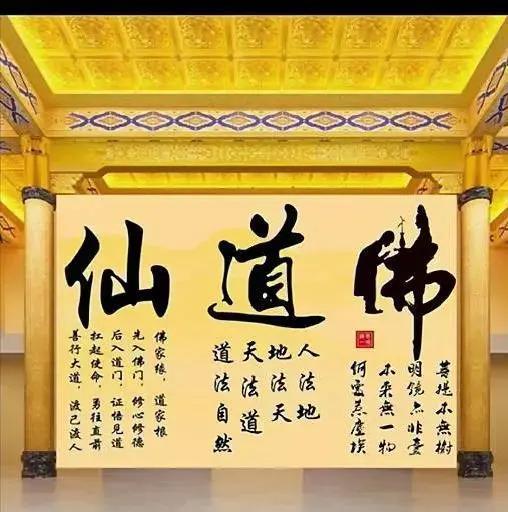 佛
菩提本無樹
明鏡亦非臺
本來無一物
何處惹塵埃
道
人法地
地法天
天法道
道法自然
仙
佛家缘，道家根
先入佛门，修心修德
后入道门，证悟见道
扛起使命，勇往直前
善行大道，渡己渡人